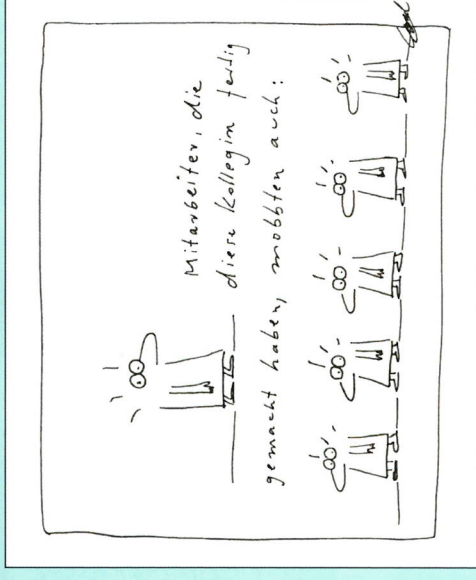 Mitarbeiter, die
diese Kollegin fertig
gemacht haben, mobbten auch: